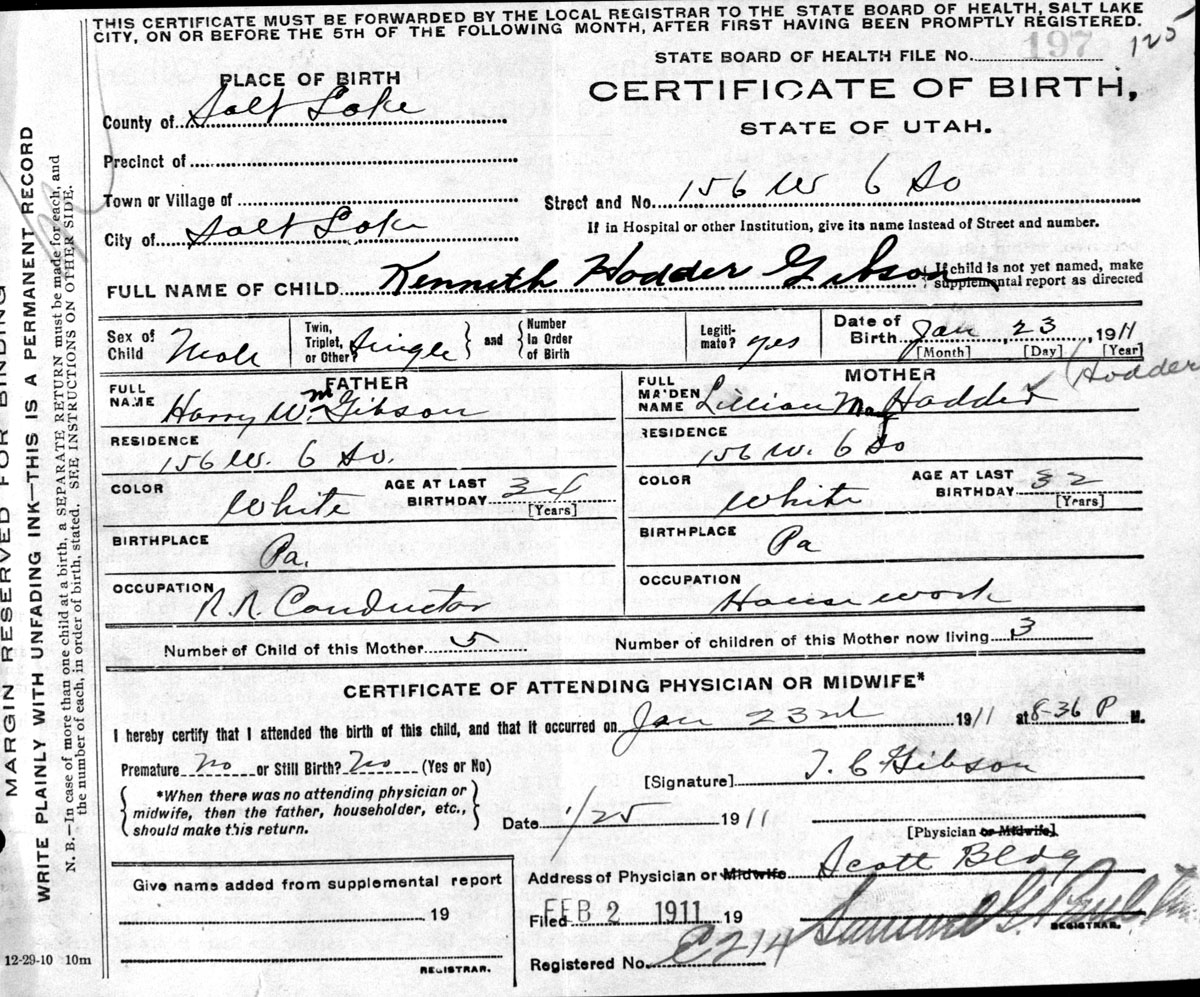 THIS CERTIFICATE MUST BE FORWARDED BY THE LOCAL REGISTRAR TO THE STATE BOARD OF HEALTH, SALT LAKE
CITY, ON OR BEFORE THE 5TH OF THE FOLLOWING MONTH, AFTER FIRST HAVING BEEN PROMPTLY REGISTERED.
STATE BOARD OF HEALTH FILE No. 197 125
PLACE OF BIRTH
CERTIFICATE OF BIRTH,
STATE OF UTAH.
County of Salt Lake
Precinct of
Town or Village of
Street and No. 156 W 6 So
City of Salt Lake
If in Hospital or other Institution, give its name instead of Street and number.
FULL NAME OF CHILD Kenneth Hodder Gibson
If child is not yet named, make
supplemental report as directed
Sex of Child Male
Twin, Triplet, or Other? Single
and
Number In Order of Birth
Legiti-mate? yes
Date of Birth Jan 23 1911
[Month] [Day] [Year]
FATHER
FULL NAME Harry Wm Gibson
RESIDENCE
156 W. 6 So.
COLOR White
AGE AT LAST BIRTHDAY 34
[Years]
BIRTHPLACE
Pa.
OCCUPATION
R.R. Conductor
MOTHER
Hodder
FULL MAIDEN NAME Lillian May Hodder
RESIDENCE
156 W. 6 So
COLOR White
AGE AT LAST BIRTHDAY 32
[Years]
BIRTHPLACE
Pa
OCCUPATION
House work
Number of Child of this Mother 5
Number of children of this Mother now living 3
CERTIFICATE OF ATTENDING PHYSICIAN OR MIDWIFE*
I hereby certify that I attended the birth of this child, and that it occurred on Jan 23rd 1911 at 8-36 P M.
Premature no or Still Birth? No (Yes or No)
[Signature] T. C Gibson
*When there was no attending physician or
midwife, then the father, householder, etc.,
should make this return.
Date 1/25 1911
[Physician or Midwife]
Address of Physician or Midwife Scott Bldg
Give name added from supplemental report
19
REGISTRAR.
Filed FEB 2 1911 19
Samuel G. Paul
REGISTRAR.
Registered No. C214
12-29-10 10m
MARGIN RESERVED FOR BINDING
WRITE PLAINLY WITH UNFADING INK—THIS IS A PERMANENT RECORD
N. B.—In case of more than one child at a birth, a SEPARATE RETURN must be made for each, and
the number of each, in order of birth, stated. SEE INSTRUCTIONS ON OTHER SIDE.